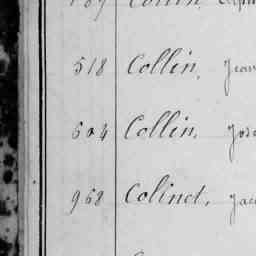 518 Collin, Jean
604 Collin, Jos
968 Colinet, Jac